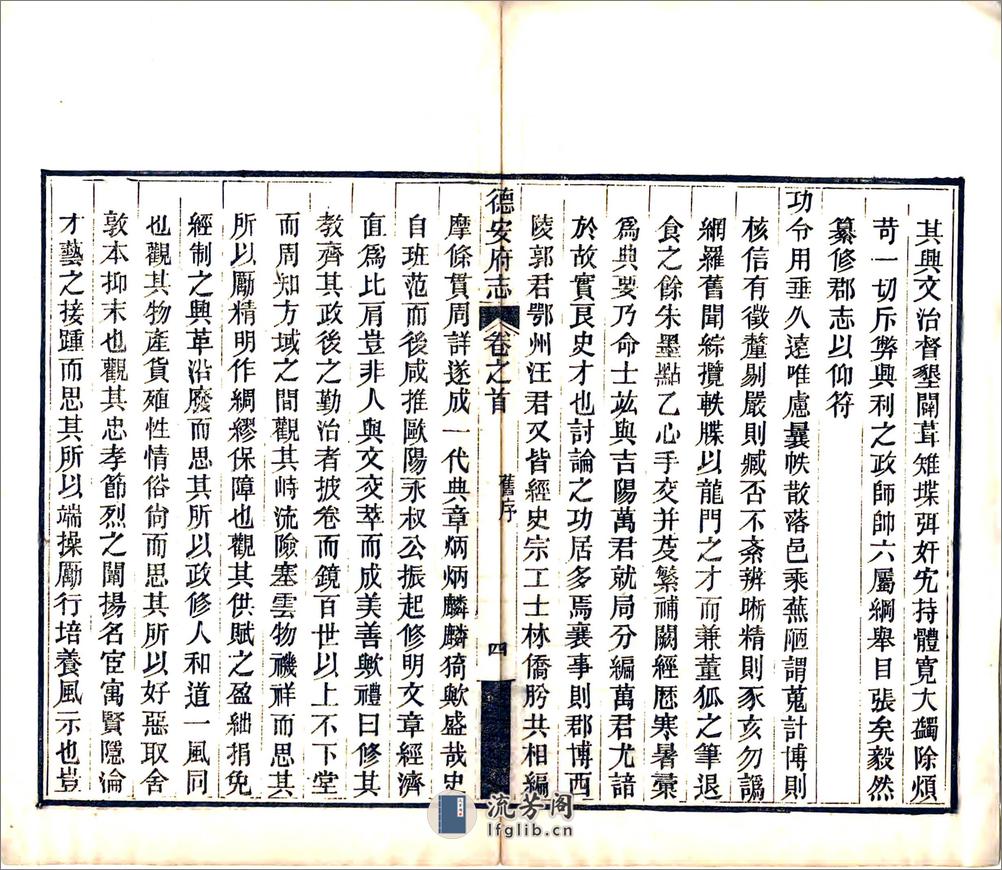 其興文治督墾闢葺雉堞弭奸宄持體寬大蠲除煩
苛一切斥弊興利之政師帥六屬綱舉目張矣毅然
纂修郡志以仰符
功令用垂久遠唯慮曩帙散落邑乘蕪陋謂蒐計博則
核信有徵釐剔嚴則臧否不紊辨晰精則豕亥勿譌
網羅舊聞綜攬軼牒以龍門之才而兼董狐之筆退
食之餘朱墨點乙心手交并芟繁補闕經歷寒暑稾
爲典要乃命士竑與吉陽萬君就局分編萬君尤諳
於故實良史才也討論之功居多焉襄事則郡博西
陵郭君鄂州汪君又皆經史宗工士林僑肹共相編
德安府志
卷之首
舊序
四
摩條貫周詳遂成一代典章炳炳麟麟猗歟盛哉史
自班范而後咸推歐陽永叔公振起修明文章經濟
直爲比肩豈非人與文交萃而成美善歟禮曰修其
教齊其政後之勤治者披卷而鏡百世以上不下堂
而周知方域之間觀其峙流險塞雲物禨祥而思其
所以勵精明作綢繆保障也觀其供賦之盈絀捐免
經制之興革沿廢而思其所以政修人和道一風同
也觀其物產貨殖性情俗尙而思其所以好惡取舍
敦本抑末也觀其忠孝節烈之闡揚名宦寓賢隱淪
才藝之接踵而思其所以端操勵行培養風示也豈
流芳阁
lfglib.cn